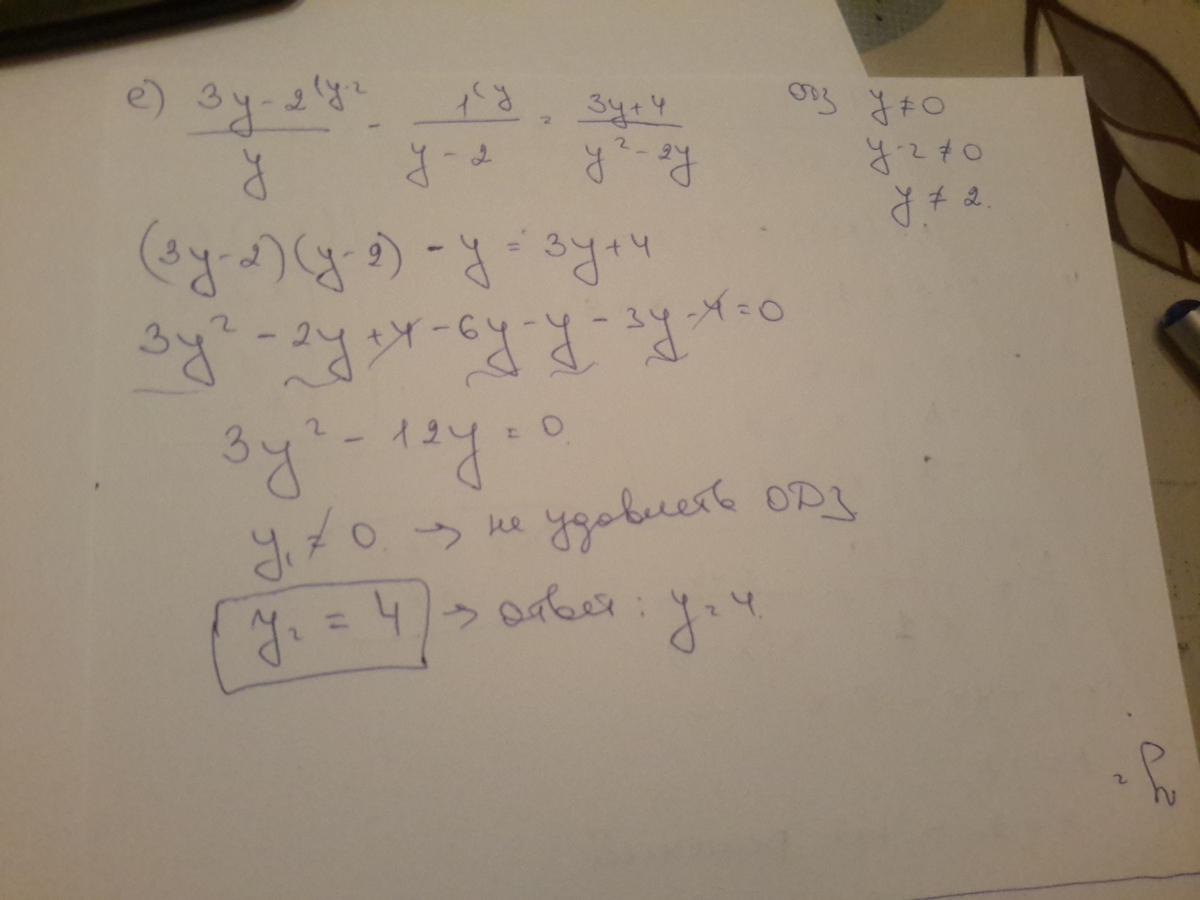 е) (3y-2)/y (y-2 - 1/(y-2) (y = (3y+4)/(y²-2y)
ОДЗ y≠0
y-2≠0
y≠2.
(3y-2)(y-2) - y = 3y+4
3y² - 2y + 4 - 6y - y - 3y - 4 = 0
3y² - 12y = 0.
y₁ ≠ 0. → не удовлеть ОДЗ
y₂ = 4 → ответ: y=4.